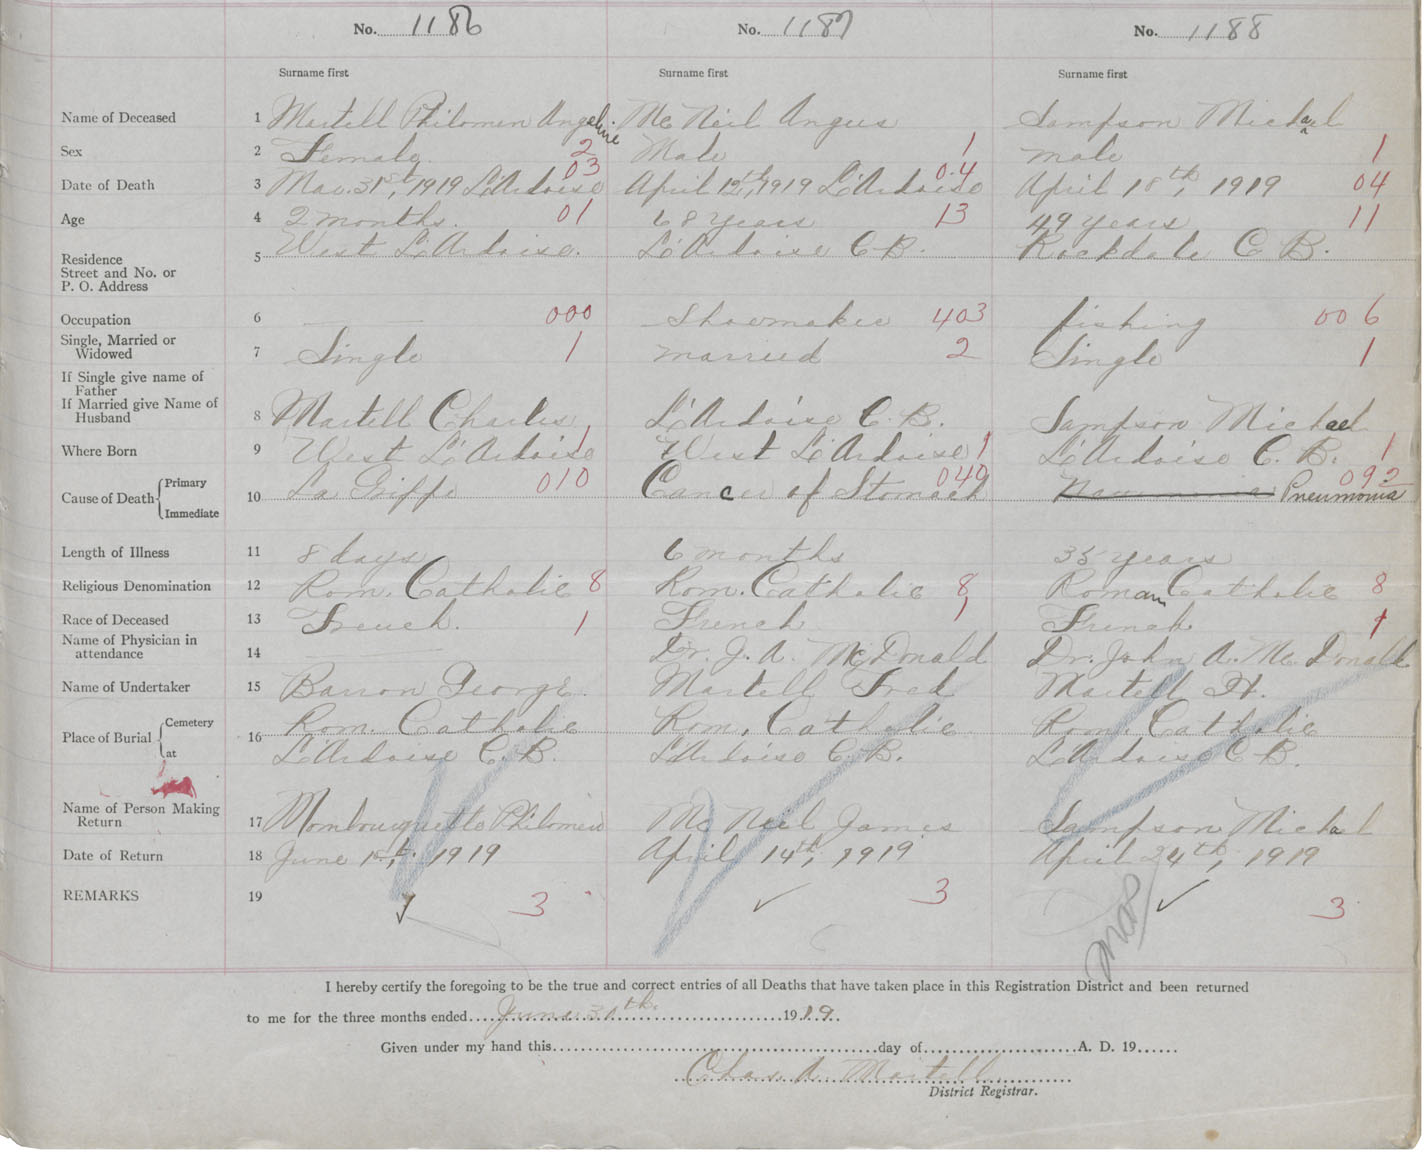 No. 1186 No. 1187 No. 1188
Surname first Surname first Surname first
Name of Deceased 1 Martell Philomen Angeline Mc Neil Angus Sampson Michael
Sex 2 Female 2 Male 1 male 1
Date of Death 3 Mar. 31st, 1919 L'Ardoise 03 April 12th, 1919 L'Ardoise 04 April 18th, 1919 04
Age 4 2 months. 01 68 years 13 49 years 11
Residence
Street and No. or
P. O. Address 5 West L'Ardoise. L'Ardoise C. B. Rockdale C. B.
Occupation 6 000 Shoemaker 403 fishing 006
Single, Married or
Widowed 7 Single 1 married 2 Single 1
If Single give name of
Father
If Married give Name of
Husband 8 Martell Charles L'Ardoise C. B. Sampson Michael
Where Born 9 West L'Ardoise 1 West L'Ardoise 1 L'Ardoise C. B. 1
Cause of Death Primary
Immediate 10 La Grippe 010 Cancer of Stomach 040 Pneumonia 092
Length of Illness 11 8 days 6 months 35 years
Religious Denomination 12 Rom. Catholic 8 Rom. Catholic 8 Roman Catholic 8
Race of Deceased 13 French. 1 French 1 French 1
Name of Physician in
attendance 14 Dr. J. A. McDonald Dr. John A. Mc Donald
Name of Undertaker 15 Barron George. Martell Fred Martell
Place of Burial Cemetery 16 Rom. Catholic Rom. Catholic Rom. Catholic
at L'Ardoise C. B. L'Ardoise C. B. L'Ardoise C B.
Name of Person Making
Return 17 Mombourquette Philomen Mc Neil James Sampson Michael
Date of Return 18 June 1919 April 14th, 1919 April 24th, 1919
REMARKS 19 3 3 3
I hereby certify the foregoing to be the true and correct entries of all Deaths that have taken place in this Registration District and been returned
to me for the three months ended June 30th 1919.
Given under my hand this day of A. D. 19
Chas. A. Martell
District Registrar.